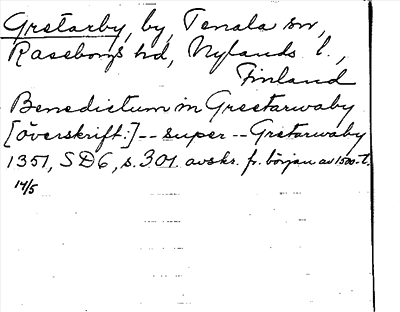 Gretarby, by, Tenala sn,
Raseborgs hd, Nylands l.,
Finland
Benedictum in Greetarwaby
[överskrift:] -- super -- Gretarwaby
1351, SD6, s. 301. avskr. fr. början av 1500-t.
14/5